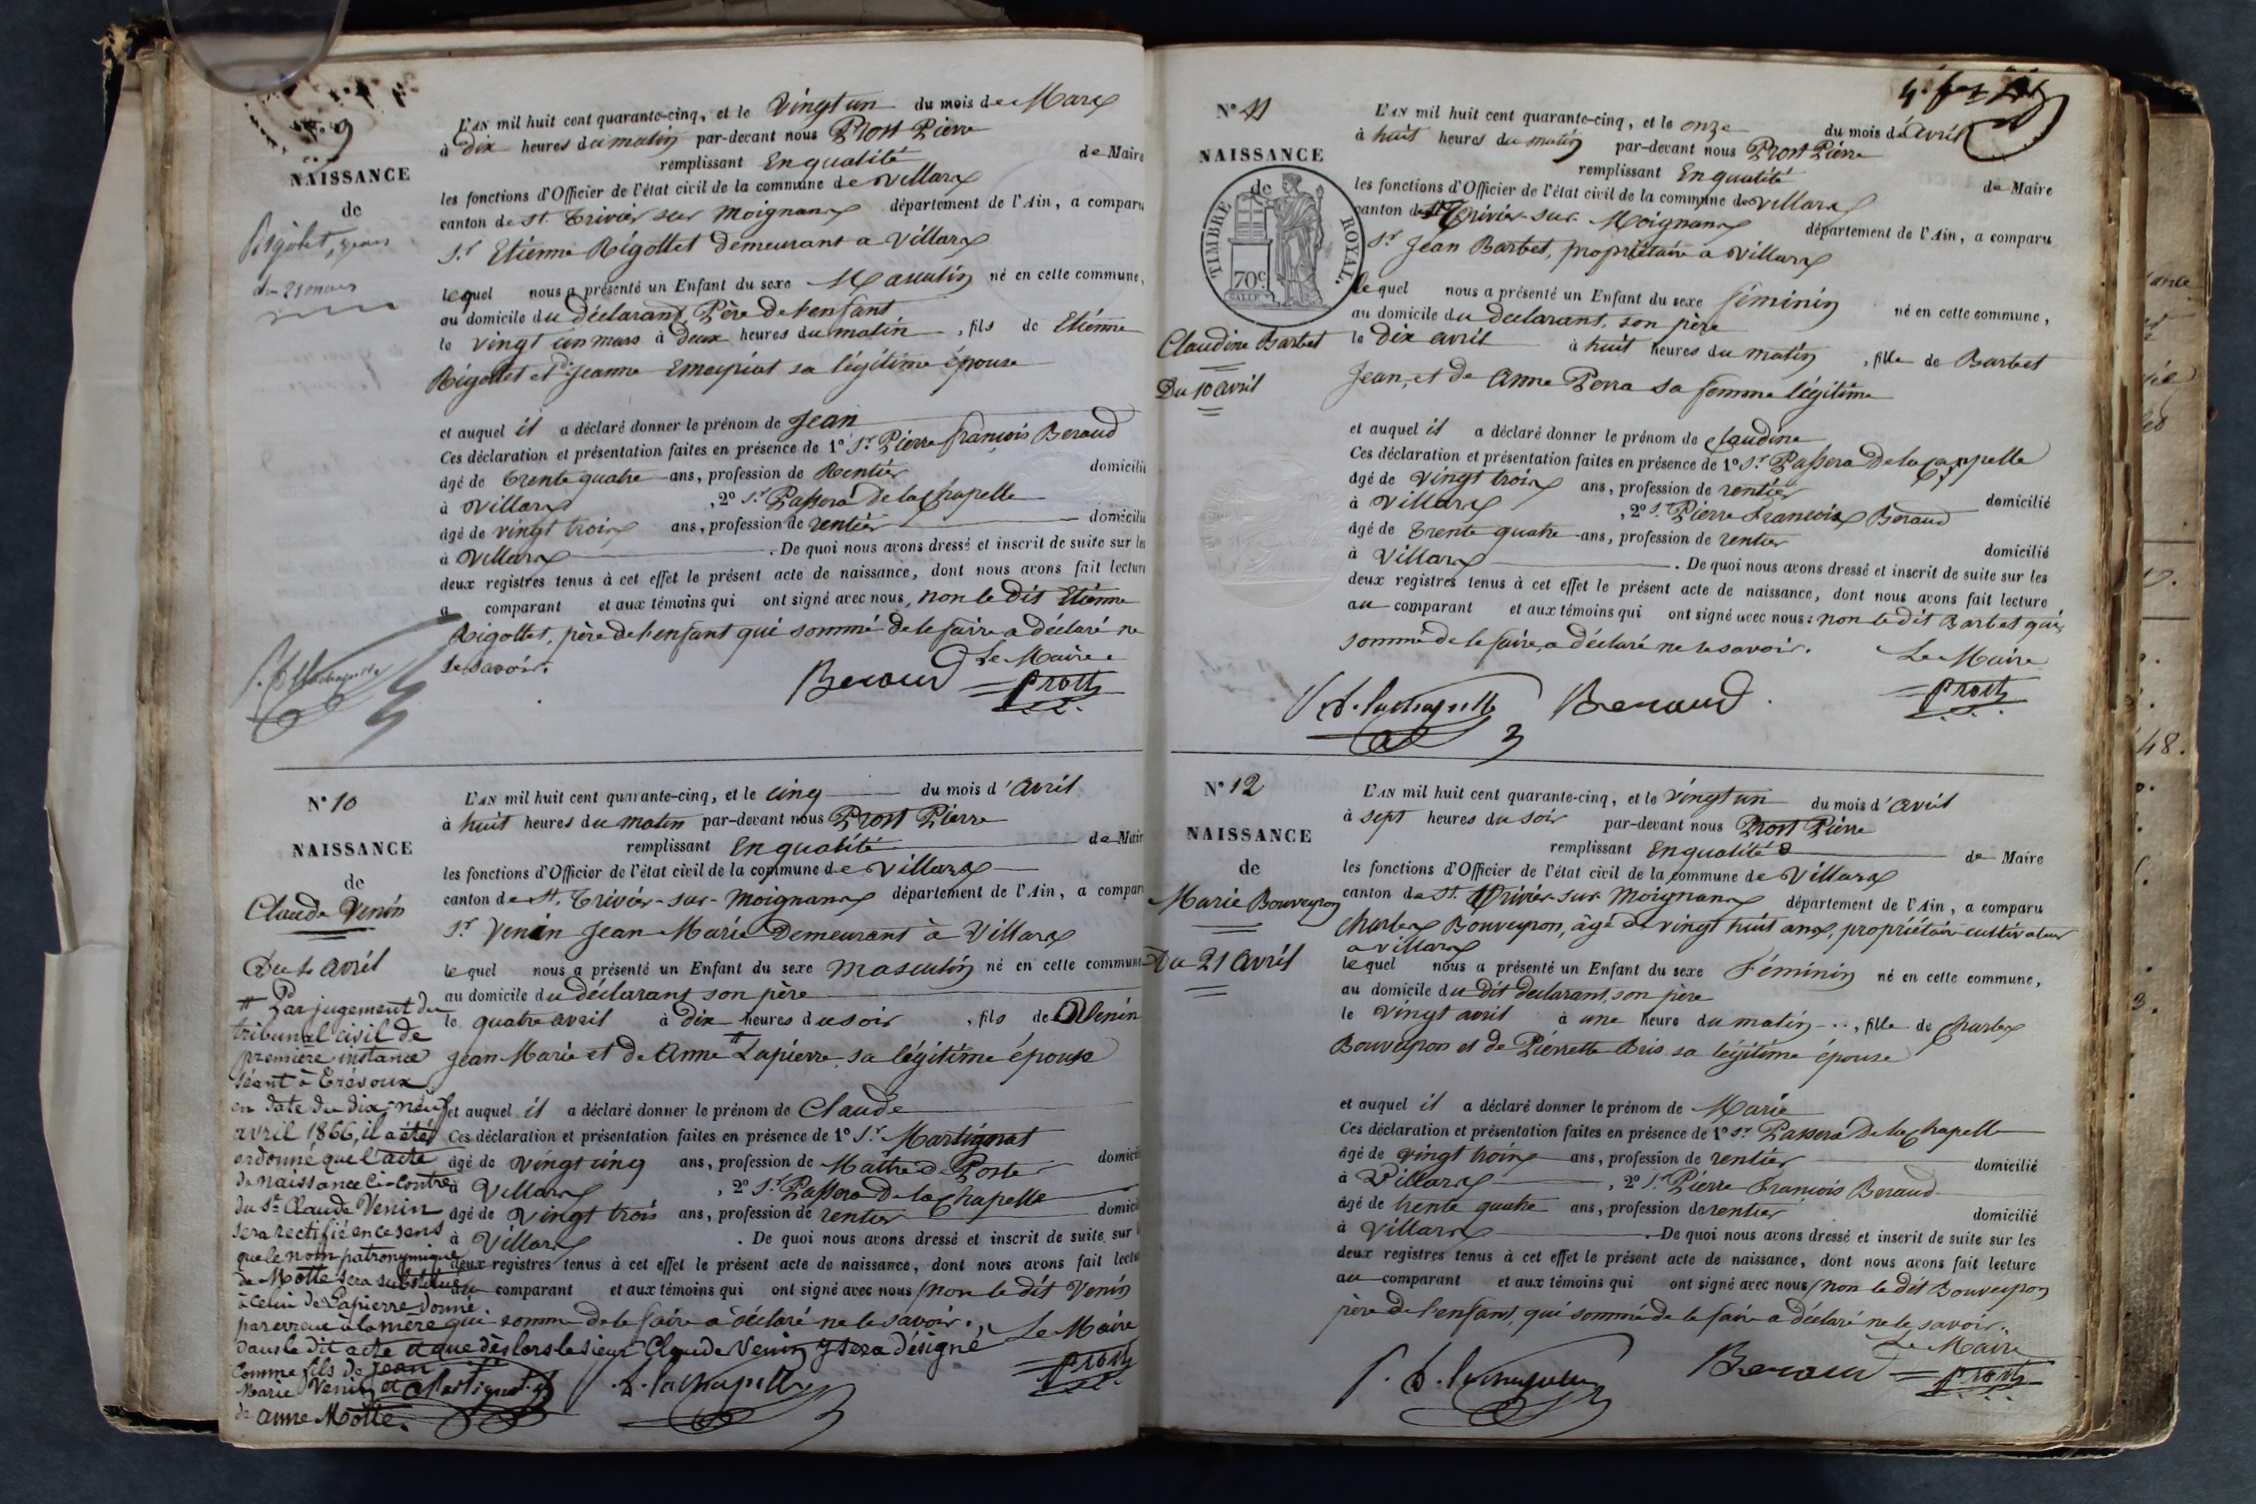 N° 9
NAISSANCE
de
Rigolet, Jean
du 21 mars
L'AN mil huit cent quarante-cinq, et le Vingt un du mois de Mars
à Dix heures du matin par-devant nous Prost Pierre
remplissant En qualité de Maire
les fonctions d'Officier de l'état civil de la commune de Villars
canton de St. Trivier sur Moignans département de l'Ain, a comparu
Sr. Etienne Rigollet demeurant a Villars
lequel nous a présenté un Enfant du sexe Masculin né en cette commune,
au domicile du déclarant, Père de l'enfant
le vingt un mars à deux heures du matin, fils de Etienne
Rigollet et de Jeanne Emeyriat sa légitime épouse
et auquel il a déclaré donner le prénom de Jean
Ces déclaration et présentation faites en présence de 1° Sr. Pierre françois Beraud
âgé de Trente quatre ans, profession de Rentier domicilié
à Villars, 2° Sr. Passera de la Chapelle
âgé de vingt trois ans, profession de rentier domicilié
à Villars. De quoi nous avons dressé et inscrit de suite sur les
deux registres tenus à cet effet le présent acte de naissance, dont nous avons fait lecture
a comparant et aux témoins qui ont signé avec nous, non le dit Etienne
Rigollet, père de l'enfant qui sommé de le faire a déclaré ne
le savoir.
Le Maire
Beraud
Prost
N° 10
NAISSANCE
de
Claude Venin
Du 4 avril
# Par jugement du
tribunal civil de
première instance
séant à Trévoux
en date du dix-neuf
avril 1866, il a été
ordonné que l'acte
de naissance ci-contre
du Sr. Claude Venin
sera rectifié en ce sens
que le nom patronymique
de Motte sera substitué
à celui de Lapierre donné
par erreur à la mère
dans le dit acte et que dès lors le sieur Claude Venin y sera désigné
comme fils de Jean
Marie Venin et
de anne Motte.
L'AN mil huit cent quarante-cinq, et le cinq du mois d'avril
à huit heures du matin par-devant nous Prost Pierre
remplissant En qualité de Maire
les fonctions d'Officier de l'état civil de la commune de Villars
canton de St. Trivier-sur-Moignans département de l'Ain, a comparu
Sr. Venin Jean Marie Demeurant à Villars
lequel nous a présenté un Enfant du sexe masculin né en cette commune
au domicile du déclarant son père
le quatre avril à dix heures du soir, fils de Venin
Jean Marie et de Anne # Lapierre sa légitime épouse
et auquel il a déclaré donner le prénom de Claude
Ces déclaration et présentation faites en présence de 1° Sr. Martignat
âgé de vingt cinq ans, profession de Maître de Poste domicilié
à Villars, 2° Sr. Passera de la Chapelle
âgé de Vingt trois ans, profession de rentier domicilié
à Villars. De quoi nous avons dressé et inscrit de suite sur
deux registres tenus à cet effet le présent acte de naissance, dont nous avons fait lecture
au comparant et aux témoins qui ont signé avec nous, non le dit Venin
qui sommé de le faire a déclaré ne le savoir.
Le Maire
Martignat
Lachapelle
Prost
N° 11
NAISSANCE
de
TIMBRE ROYAL.
70c.
Claudine Barbet
Du 10 avril
L'AN mil huit cent quarante-cinq, et le onze du mois d'avril
à huit heures du matin par-devant nous Prost Pierre
remplissant En qualité de Maire
les fonctions d'Officier de l'état civil de la commune de Villars
canton de St Trivier-sur-Moignans département de l'Ain, a comparu
Sr. Jean Barbet, propriétaire a Villars
lequel nous a présenté un Enfant du sexe féminin né en cette commune,
au domicile du declarant, son père
le dix avril à huit heures du matin, fille de Barbet
Jean, et de Anne Perra sa femme légitime
et auquel il a déclaré donner le prénom de Claudine
Ces déclaration et présentation faites en présence de 1° Sr. Passera de la Chappelle
âgé de vingt trois ans, profession de rentier domicilié
à Villars, 2° Sr. Pierre François Beraud
âgé de Trente quatre ans, profession de rentier domicilié
à Villars. De quoi nous avons dressé et inscrit de suite sur les
deux registres tenus à cet effet le présent acte de naissance, dont nous avons fait lecture
au comparant et aux témoins qui ont signé avec nous: non le dit Barbet qui
sommé de le faire a déclaré ne le savoir.
Le Maire
Lachapelle
Beraud
Prost
N° 12
NAISSANCE
de
Marie Bouveyron
Du 21 avril
L'AN mil huit cent quarante-cinq, et le vingt un du mois d'avril
à sept heures du soir par-devant nous Prost Pierre
remplissant En qualité de Maire
les fonctions d'Officier de l'état civil de la commune de Villars
canton de St. Trivier-sur-Moignans département de l'Ain, a comparu
Charles Bouveyron, âgé de vingt huit ans, propriétaire cultivateur
a villars
lequel nous a présenté un Enfant du sexe Féminin né en cette commune,
au domicile du dit declarant, son père
le Vingt avril à une heure du matin, fille de Charles
Bouveyron et de Pierrette Bris sa légitime épouse
et auquel il a déclaré donner le prénom de Marie
Ces déclaration et présentation faites en présence de 1° Sr. Passera de la Chapelle
âgé de vingt trois ans, profession de rentier domicilié
à Villars, 2° Sr. Pierre François Beraud
âgé de trente quatre ans, profession de rentier domicilié
à Villars. De quoi nous avons dressé et inscrit de suite sur les
deux registres tenus à cet effet le présent acte de naissance, dont nous avons fait lecture
au comparant et aux témoins qui ont signé avec nous, non le dit Bouveyron
père de l'enfant, qui sommé de le faire a déclaré ne le savoir.
Le Maire
Beraud
Prost